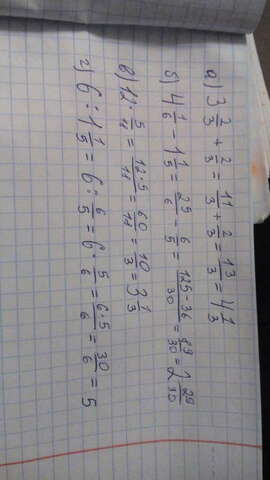 а) 3 2/3 + 2/3 = 11/3 + 2/3 = 13/3 = 4 1/3
б) 4 1/6 - 1 1/5 = 25/6 - 6/5 = 125-36/30 = 89/30 = 2 29/30
в) 12 · 5/11 = 12·5/11 = 60/11 = 10/3 = 3 1/3
г) 6 : 1 1/5 = 6 : 6/5 = 6 · 5/6 = 6·5/6 = 30/6 = 5